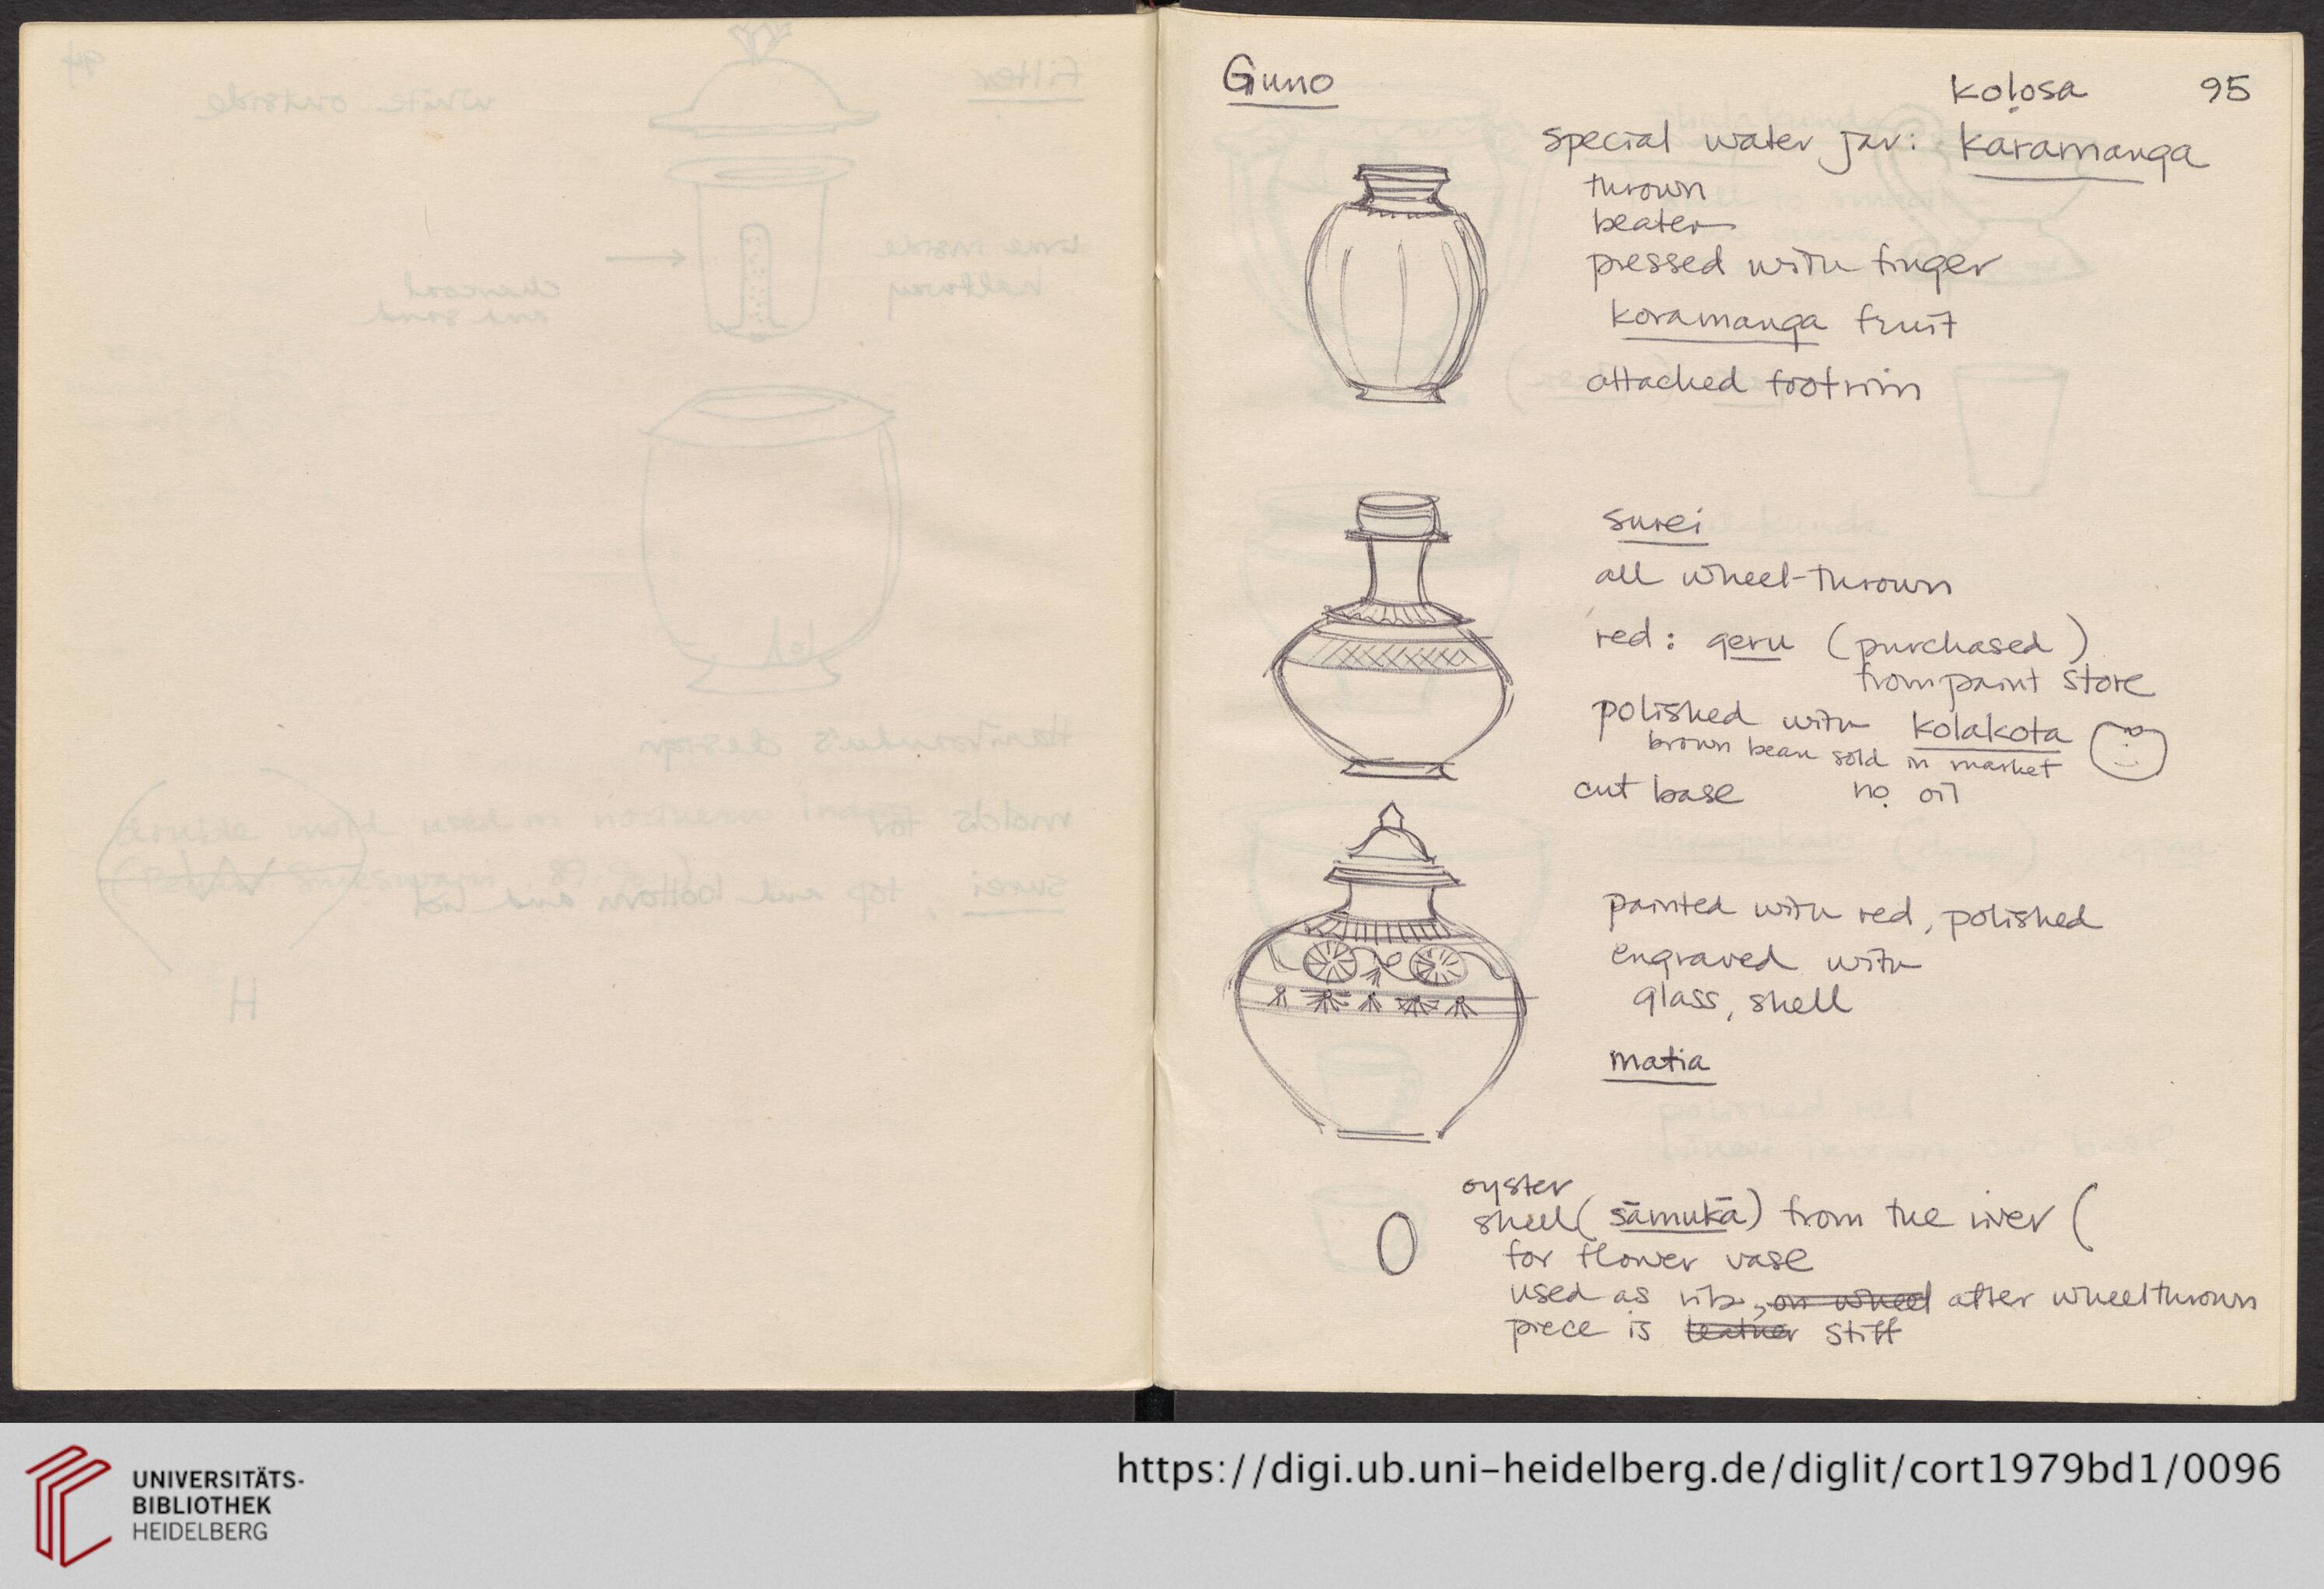 Guno
koḷosa 95
special water jar: karamanga
thrown
beaten
pressed with finger
koramanga fruit
attached footrim
surei
all wheel-thrown
red: geru (purchased)
from paint store
polished with kolakota
brown bean sold in market
cut base no oil
painted with red, polished
engraved with
glass, shell
matia
oyster
shell (sāmukā) from the river (
for flower vase
used as rib, on wheel after wheelthrown
piece is leather stiff
UNIVERSITÄTS-
BIBLIOTHEK
HEIDELBERG
https://digi.ub.uni-heidelberg.de/diglit/cort1979bd1/0096